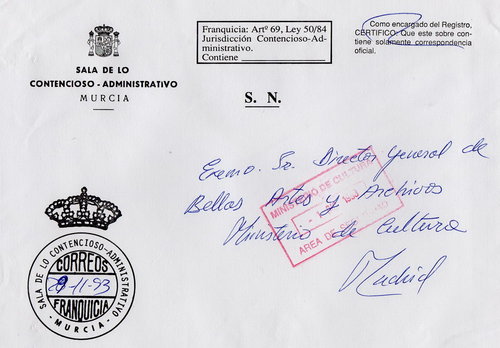 SALA DE LO
CONTENCIOSO - ADMINISTRATIVO
MURCIA
Franquicia: Artº 69, Ley 50/84
Jurisdicción Contencioso-Ad-
ministrativo.
Contiene
Como encargado del Registro,
CERTIFICO: Que este sobre con-
tiene solamente correspondencia
oficial.
S. N.
Excmo. Sr. Director General de
Bellas Artes y Archivos
Ministerio de Cultura
Madrid
MINISTERIO DE CULTURA
AREA DE
SALA DE LO CONTENCIOSO-ADMINISTRATIVO
CORREOS
29-11-93
FRANQUICIA
- MURCIA -